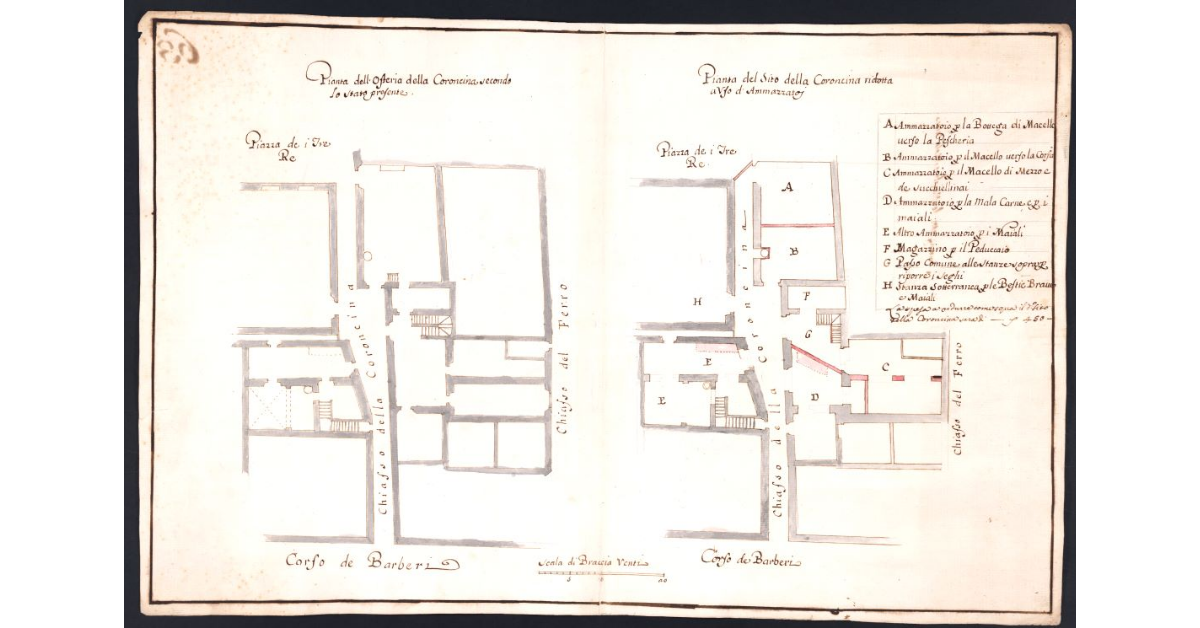 Pianta dell'Osteria della Coroncina secondo
lo stato presente.
Piazza de i Tre
Re
Chiasso della Coroncina
Chiasso del Ferro
Corso de Barberi
Scala di Braccia Venti
Pianta del Sito della Coroncina ridotta
a Uso d'Ammazzatoj
Piazza de i Tre
Re.
A
B
H
F
G
E
E
C
D
Chiasso della Coroncina
Chiasso del Ferro
Corso de Barberi
A Ammazzatoio p la Bottega di Macello
verso la Pescheria
B Ammazzatoio p il Macello verso la Corsia
C Ammazzatoio p il Macello di Mezzo e
de Succhiellinai
D Ammazzatoio p la Mala Carne, e p i
maiali
E Altro Ammazzatoio p i Maiali
F Magazzino p il Peduccaio
G Passo Comune alle Stanze sopra p
riporre i Seghi
H Stanza Sotterranea p le Bestie Brave
e Maiali
della Coroncina sarà di — 450 —